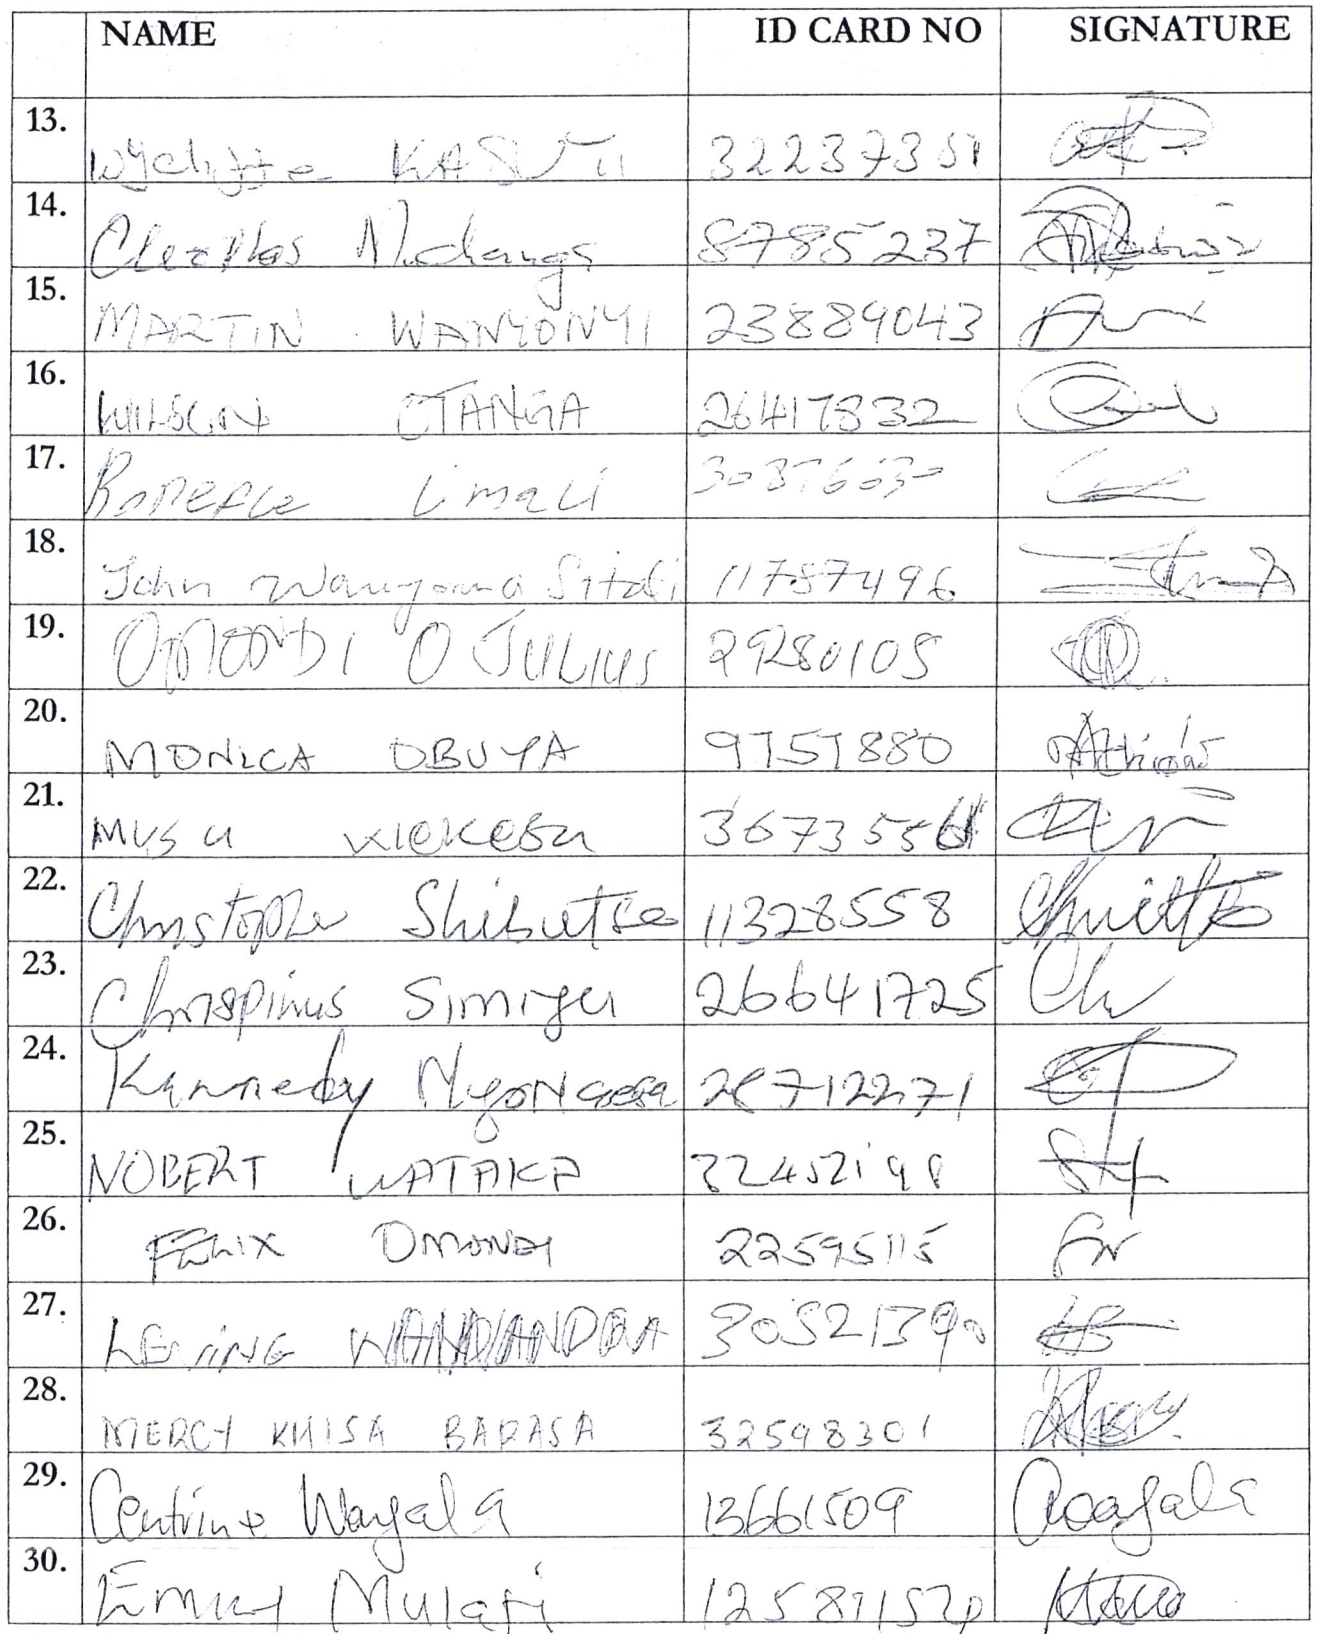 NAME ID CARD NO SIGNATURE
13. Wycliffe KASUTI 32237351
14. Cleophas Muchangi 8785237
15. MARTIN WANYONYI 23889043
16. WILSON OTANGA 26417832
17. Boneface Limali
18. John Wanyama Sitati 11787496
19. OMONDI O JULIUS 29280105
20. MONICA OBUYA 9757880
21. MUSA WEKESA
22. Christopher Shibutse 11328558
23. Chrispinus Simiyu 26641725
24. Kennedy Nyongesa 28712271
25. NOBERT WATAKA 32452198
26. FELIX OMONDI 22595115
27. 30521390
28. MERCY KHISA BARASA 32598301
29. Centrine Wayala 13661509
30. Emily Mulati